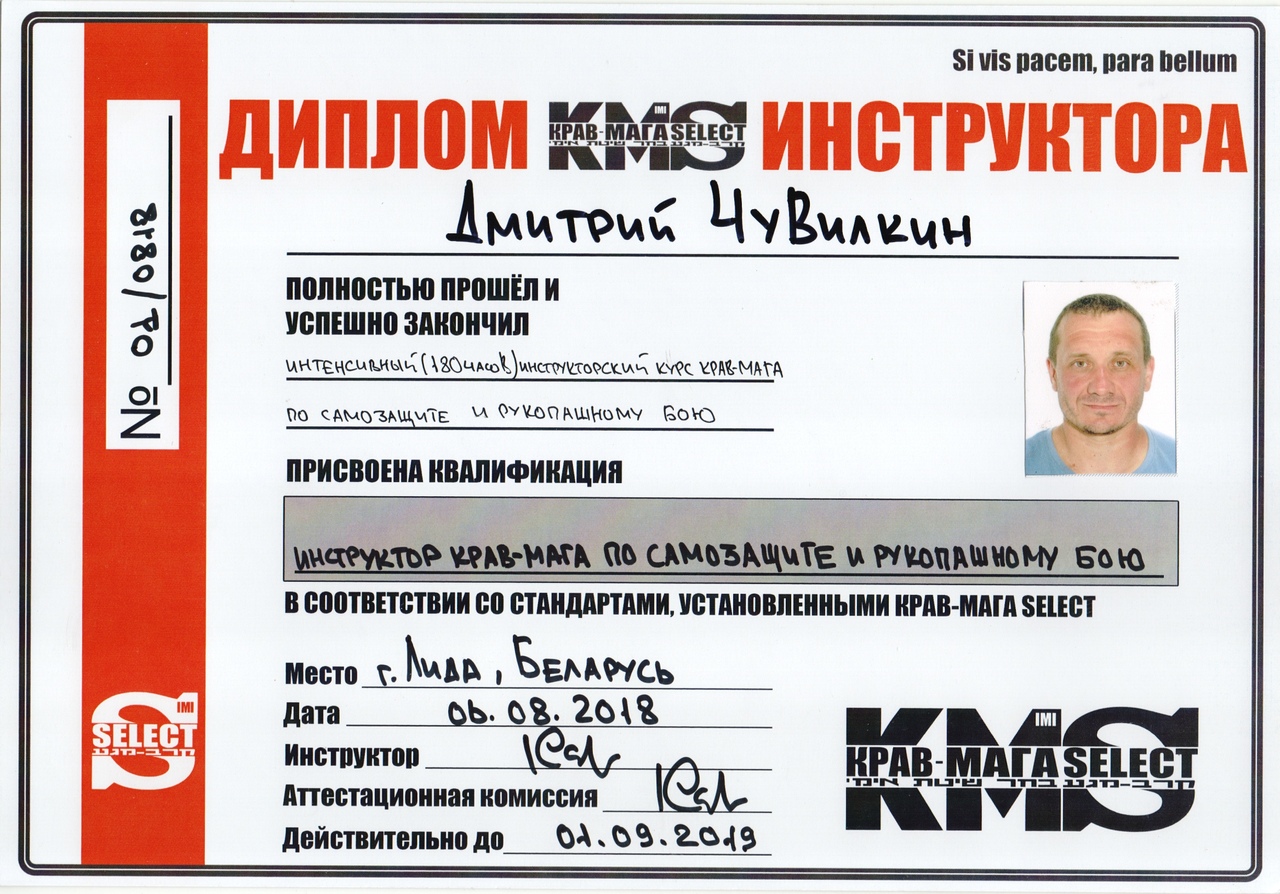 Si vis pacem, para bellum
ДИПЛОМ KMS IMI КРАВ-МАГА SELECT ИНСТРУКТОРА
Дмитрий Чувилкин
ПОЛНОСТЬЮ ПРОШЁЛ И
УСПЕШНО ЗАКОНЧИЛ
ИНТЕНСИВНЫЙ (180 ЧАСОВ) ИНСТРУКТОРСКИЙ КУРС КРАВ-МАГА
ПО САМОЗАЩИТЕ И РУКОПАШНОМУ БОЮ
ПРИСВОЕНА КВАЛИФИКАЦИЯ
ИНСТРУКТОР КРАВ-МАГА ПО САМОЗАЩИТЕ И РУКОПАШНОМУ БОЮ
В СООТВЕТСТВИИ СО СТАНДАРТАМИ, УСТАНОВЛЕННЫМИ КРАВ-МАГА SELECT
Место г. Лида, Беларусь
Дата 06.08.2018
Инструктор
Аттестационная комиссия
Действительно до 01.09.2019
№ 07/0818
S IMI
SELECT
קרב-מגע
KMS IMI
КРАВ-МАГА SELECT
קרב-מגע בחר שיטת אימי